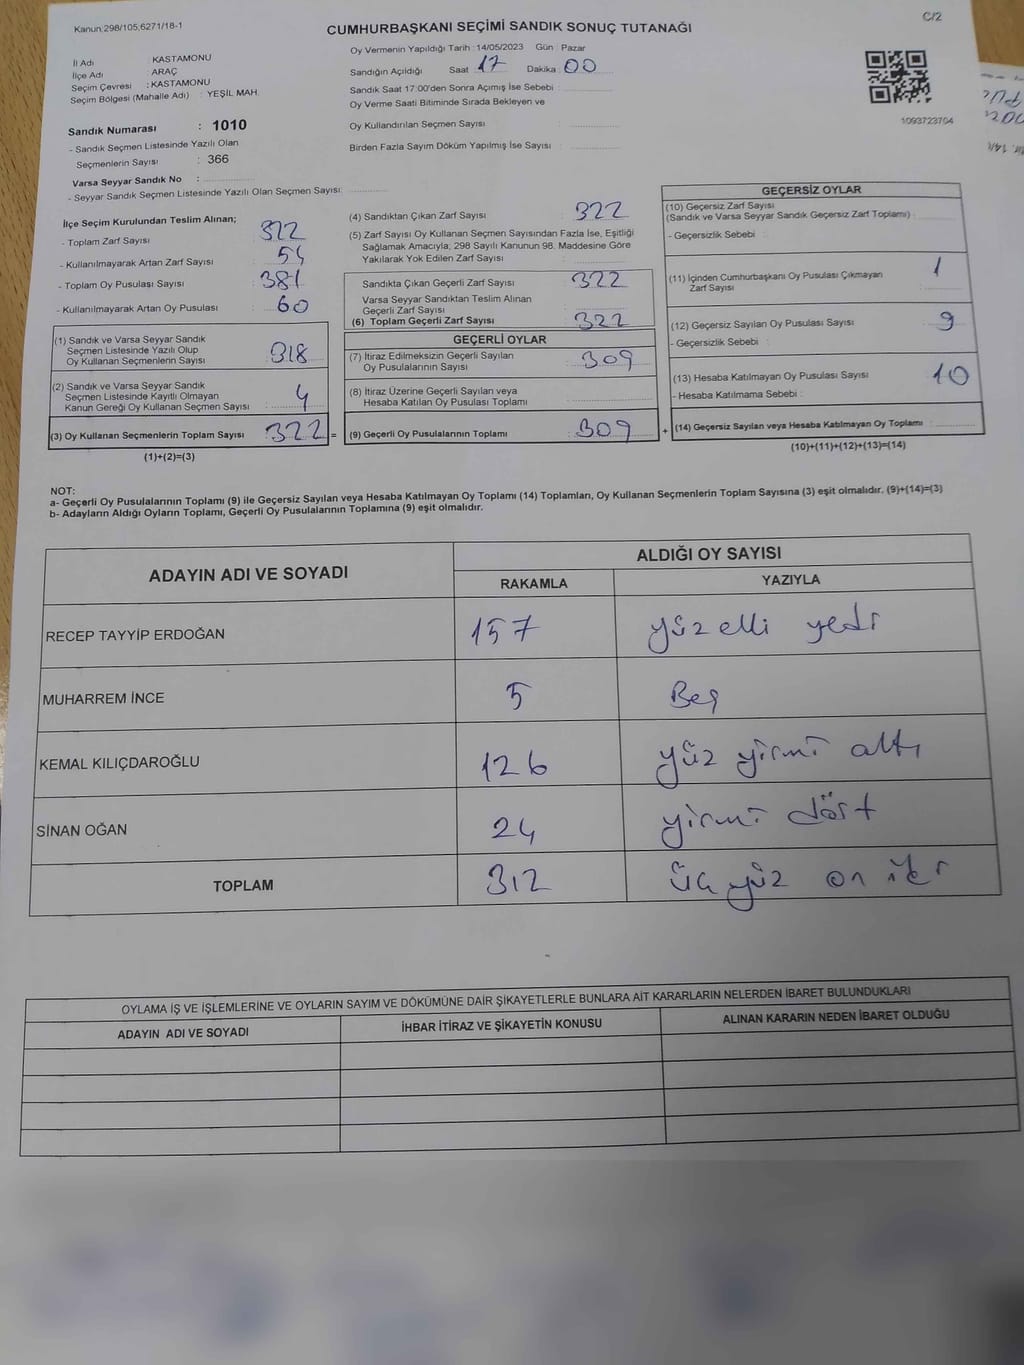 Kanun:298/105,6271/18-1
C/2
CUMHURBAŞKANI SEÇİMİ SANDIK SONUÇ TUTANAĞI
Oy Vermenin Yapıldığı Tarih : 14/05/2023 Gün : Pazar
İl Adı : KASTAMONU
İlçe Adı : ARAÇ
Seçim Çevresi : KASTAMONU
Seçim Bölgesi (Mahalle Adı) : YEŞİL MAH.
Sandığın Açıldığı Saat 17 Dakika 00
Sandık Saat 17:00'den Sonra Açımış İse Sebebi :
Oy Verme Saati Bitiminde Sırada Bekleyen ve
Oy Kullandırılan Seçmen Sayısı :
Birden Fazla Sayım Döküm Yapılmış İse Sayısı :
1093723704
Sandık Numarası : 1010
- Sandık Seçmen Listesinde Yazılı Olan
Seçmenlerin Sayısı : 366
Varsa Seyyar Sandık No :
- Seyyar Sandık Seçmen Listesinde Yazılı Olan Seçmen Sayısı:
İlçe Seçim Kurulundan Teslim Alınan;
- Toplam Zarf Sayısı : 322
- Kullanılmayarak Artan Zarf Sayısı : 54
- Toplam Oy Pusulası Sayısı : 381
- Kullanılmayarak Artan Oy Pusulası : 60
(1) Sandık ve Varsa Seyyar Sandık
Seçmen Listesinde Yazılı Olup
Oy Kullanan Seçmenlerin Sayısı : 318
(2) Sandık ve Varsa Seyyar Sandık
Seçmen Listesinde Kayıtlı Olmayan
Kanun Gereği Oy Kullanan Seçmen Sayısı : 4
(3) Oy Kullanan Seçmenlerin Toplam Sayısı : 322 =
(1)+(2)=(3)
(4) Sandıktan Çıkan Zarf Sayısı : 322
(5) Zarf Sayısı Oy Kullanan Seçmen Sayısından Fazla İse, Eşitliği
Sağlamak Amacıyla; 298 Sayılı Kanunun 98. Maddesine Göre
Yakılarak Yok Edilen Zarf Sayısı :
Sandıkta Çıkan Geçerli Zarf Sayısı : 322
Varsa Seyyar Sandıktan Teslim Alınan
Geçerli Zarf Sayısı :
(6) Toplam Geçerli Zarf Sayısı : 322
GEÇERLİ OYLAR
(7) İtiraz Edilmeksizin Geçerli Sayılan
Oy Pusulalarının Sayısı : 309
(8) İtiraz Üzerine Geçerli Sayılan veya
Hesaba Katılan Oy Pusulası Toplamı :
(9) Geçerli Oy Pusulalarının Toplamı : 309 +
GEÇERSİZ OYLAR
(10) Geçersiz Zarf Sayısı
(Sandık ve Varsa Seyyar Sandık Geçersiz Zarf Toplamı) :
- Geçersizlik Sebebi :
(11) İçinden Cumhurbaşkanı Oy Pusulası Çıkmayan
Zarf Sayısı : 1
(12) Geçersiz Sayılan Oy Pusulası Sayısı : 9
- Geçersizlik Sebebi :
(13) Hesaba Katılmayan Oy Pusulası Sayısı : 10
- Hesaba Katılmama Sebebi :
(14) Geçersiz Sayılan veya Hesaba Katılmayan Oy Toplamı :
(10)+(11)+(12)+(13)=(14)
NOT:
a- Geçerli Oy Pusulalarının Toplamı (9) ile Geçersiz Sayılan veya Hesaba Katılmayan Oy Toplamı (14) Toplamları, Oy Kullanan Seçmenlerin Toplam Sayısına (3) eşit olmalıdır. (9)+(14)=(3)
b- Adayların Aldığı Oyların Toplamı, Geçerli Oy Pusulalarının Toplamına (9) eşit olmalıdır.
ADAYIN ADI VE SOYADI
ALDIĞI OY SAYISI
RAKAMLA YAZIYLA
RECEP TAYYİP ERDOĞAN 157 yüz elli yedi
MUHARREM İNCE 5 Beş
KEMAL KILIÇDAROĞLU 126 yüz yirmi altı
SİNAN OĞAN 24 yirmi dört
TOPLAM 312 üç yüz on iki
OYLAMA İŞ VE İŞLEMLERİNE VE OYLARIN SAYIM VE DÖKÜMÜNE DAİR ŞİKAYETLERLE BUNLARA AİT KARARLARIN NELERDEN İBARET BULUNDUKLARI
ADAYIN ADI VE SOYADI İHBAR İTİRAZ VE ŞİKAYETİN KONUSU ALINAN KARARIN NEDEN İBARET OLDUĞU